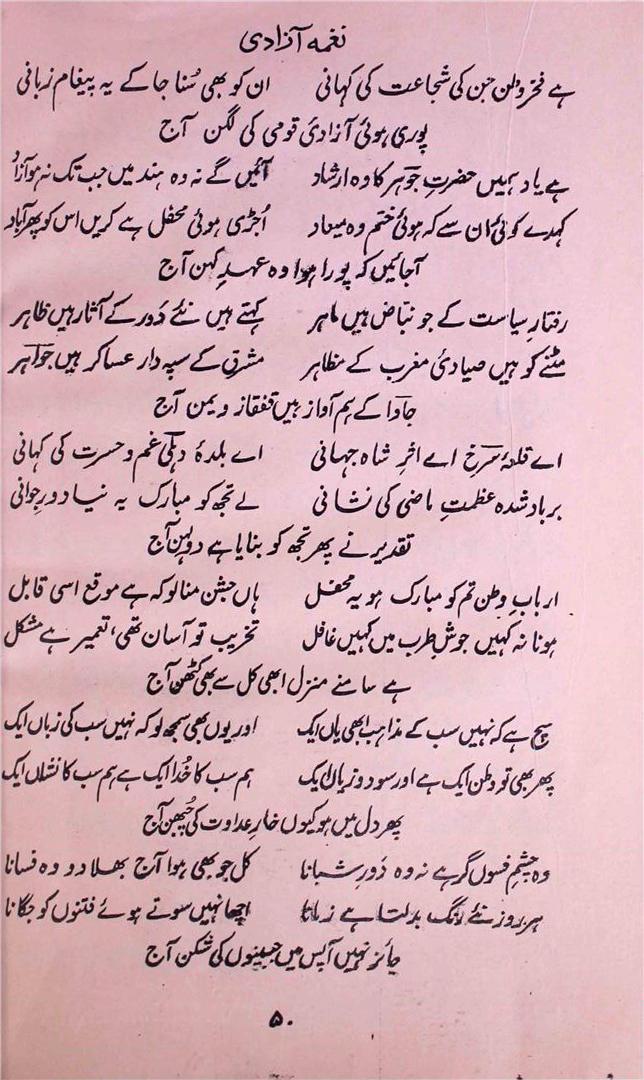 نغمہ آزادی
ہے فخرِ وطن جن کی شجاعت کی کہانی ان کو بھی سُنا جا کے یہ پیغام زبانی
پوری ہوئی آزادیٔ قومی کی لگن آج
ہے یاد ہمیں حضرتِ جوہر کا وہ ارشاد آئیں گے نہ وہ ہند میں جب تک نہ ہو آزاد
کہدے کوئی اُن سے کہ ہوئی ختم وہ میعاد اُجڑی ہوئی محفل ہے کریں اس کو پھر آباد
آجائیں کہ پورا ہوا وہ عہدِ کہن آج
رفتارِ سیاست کے جو نباض ہیں ماہر کہتے ہیں نئے دَور کے آثار ہیں ظاہر
مٹنے کو ہیں صیادیٔ مغرب کے مظاہر مشرق کے سپہ دار عساکر ہیں جواہر
جاوا کے ہم آواز ہیں قفقاز و یمن آج
اے قلعۂ سرخ اے اثرِ شاہ جہانی اے بلدۂ دہلی غم و حسرت کی کہانی
برباد شدہ عظمتِ ماضی کی نشانی لے تجھ کو مبارک یہ نیا دورِ جوانی
تقدیر نے پھر تجھ کو بنایا ہے دولہن آج
اربابِ وطن تم کو مبارک ہو یہ محفل ہاں جشن منا لو کہ ہے موقع اسی قابل
ہونا نہ کہیں جوشِ طرب میں کہیں غافل تخریب تو آسان تھی، تعمیر ہے مشکل
ہے سامنے منزل ابھی کل سے بھی کٹھن آج
سچ ہے کہ نہیں سب کے مذاہب ابھی یاں ایک اور یوں بھی سمجھ لو کہ نہیں سب کی زباں ایک
پھر بھی تو وطن ایک ہے اور سود و زیاں ایک ہم سب کا خُدا ایک ہے ہم سب کا نشاں ایک
پھر دل میں ہو کیوں خارِ عداوت کی چُبھن آج
وہ چشمِ فسوں گر ہے نہ وہ دَورِ شبانا کل جو بھی ہوا آج بھلا دو وہ فسانا
ہر روز نئے رنگ بدلتا ہے زمانا اچھا نہیں سوتے ہوئے فتنوں کو جگانا
جائز نہیں آپس میں جبینوں کی شکن آج
۵۰